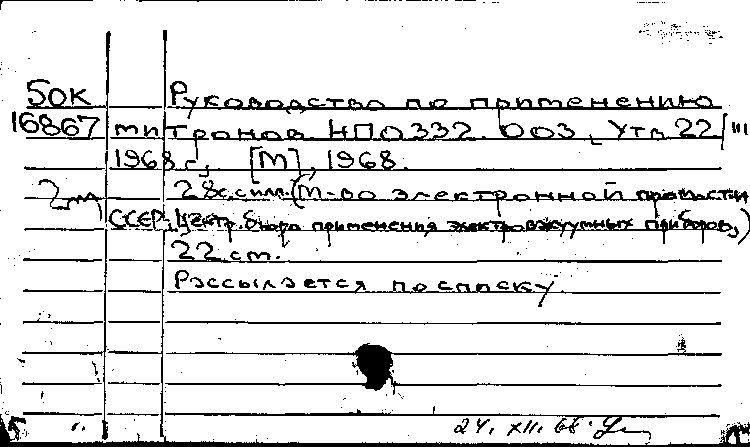 50К Руководство по применению
16867 митронов НП0.332.003, Утв. 22/III
1968 г., [М], 1968.
2м 28с. с илл. (М-во электронной пром-сти
СССР. Центр. бюро применения электровакуумных приборов,)
22 см.
Рассылается по списку
24. XII. 68.